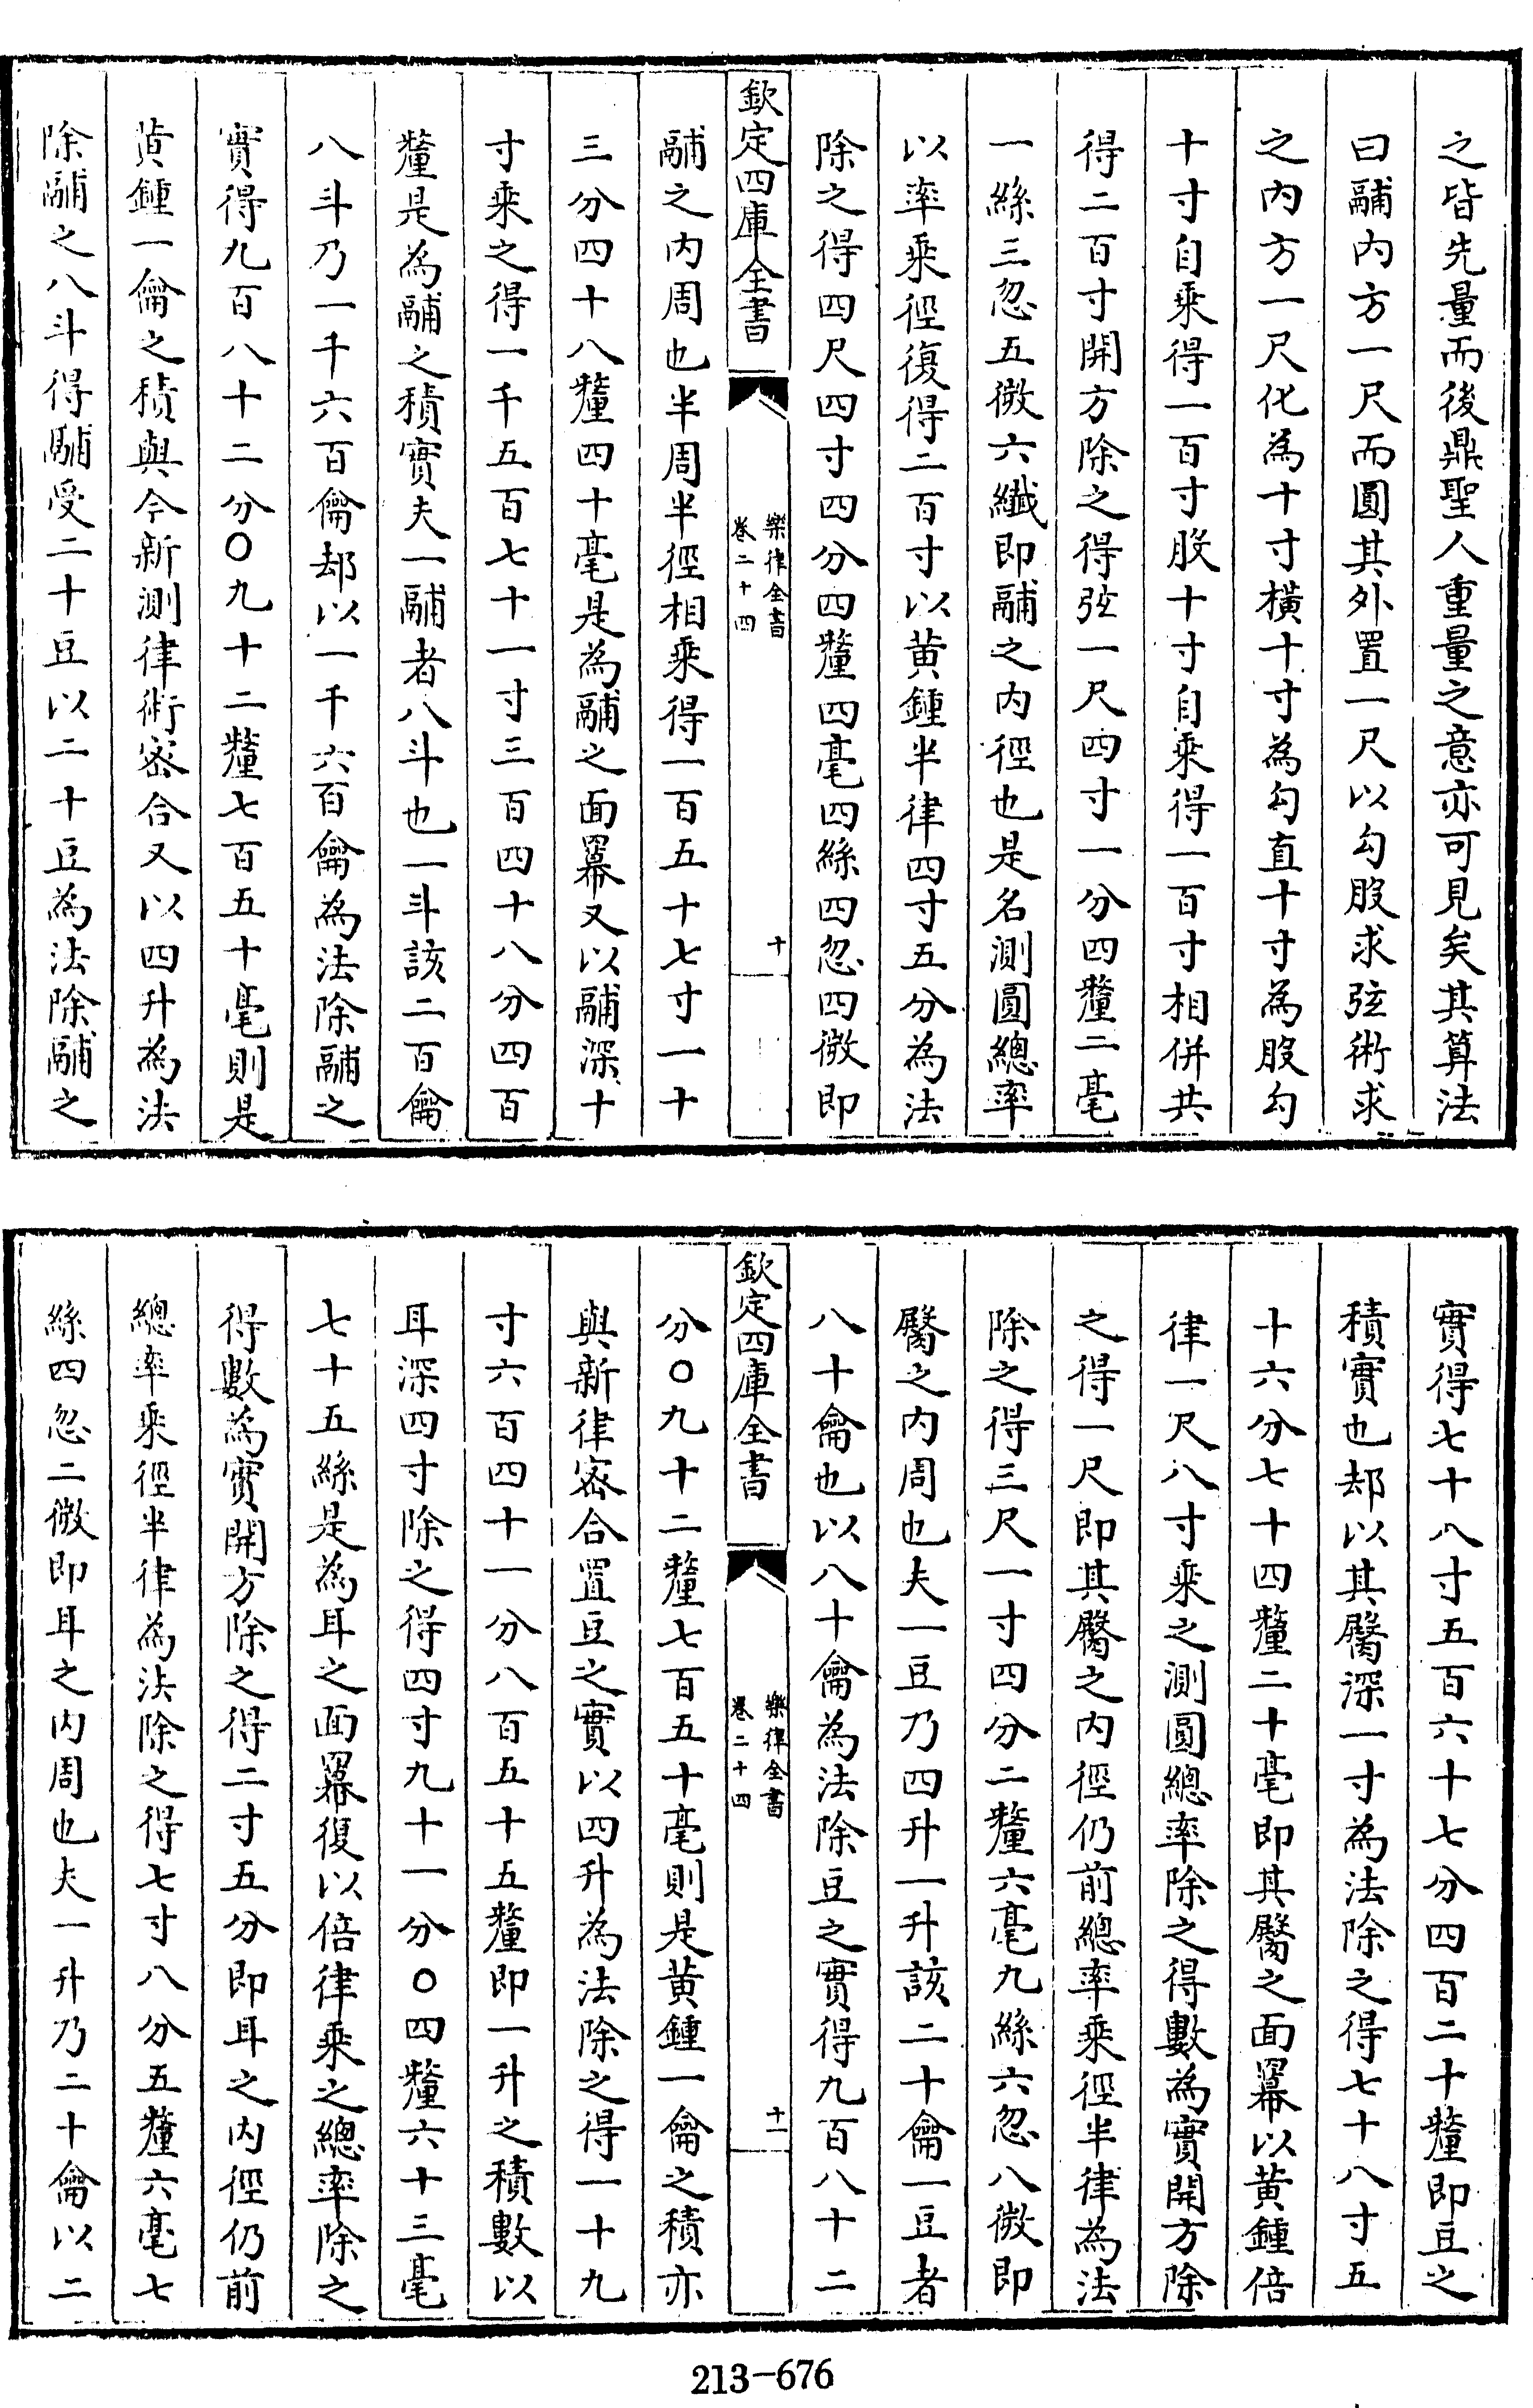 之皆先量而後鼎聖人重量之意亦可見矣其算法
曰鬴内方一尺而圓其外置一尺以勾股求弦術求
之内方一尺化為十寸橫十寸為勾直十寸為股勾
十寸自乘得一百寸股十寸自乘得一百寸相併共
得二百寸開方除之得弦一尺四寸一分四釐二毫
一絲三忽五微六纖即鬴之内徑也是名測圓總率
以率乘徑復得二百寸以黃鍾半律四寸五分為法
除之得四尺四寸四分四釐四毫四絲四忽四微即
欽定四庫全書
樂律全書
卷二十四
十
鬴之内周也半周半徑相乘得一百五十七寸一十
三分四十八釐四十毫是為鬴之面冪又以鬴深十
寸乘之得一千五百七十一寸三百四十八分四百
釐是為鬴之積實夫一鬴者八斗也一斗該二百龠
八斗乃一千六百龠却以一千六百龠為法除鬴之
實得九百八十二分〇九十二釐七百五十毫則是
黃鍾一龠之積與今新測律術密合又以四升為法
除鬴之八斗得鬴受二十豆以二十豆為法除鬴之
實得七十八寸五百六十七分四百二十釐即豆之
積實也却以其臋深一寸為法除之得七十八寸五
十六分七十四釐二十毫即其臋之面冪以黃鍾倍
律一尺八寸乘之測圓總率除之得數為實開方除
之得一尺即其臋之内徑仍前總率乘徑半律為法
除之得三尺一寸四分二釐六毫九絲六忽八微即
臋之内周也夫一豆乃四升一升該二十龠一豆者
八十龠也以八十龠為法除豆之實得九百八十二
欽定四庫全書
樂律全書
卷二十四
十一
分〇九十二釐七百五十毫則是黃鍾一龠之積亦
與新律密合置豆之實以四升為法除之得一十九
寸六百四十一分八百五十五釐即一升之積數以
耳深四寸除之得四寸九十一分〇四釐六十三毫
七十五絲是為耳之面冪復以倍律乘之總率除之
得數為實開方除之得二寸五分即耳之内徑仍前
總率乘徑半律為法除之得七寸八分五釐六毫七
絲四忽二微即耳之内周也夫一升乃二十龠以二
213-676